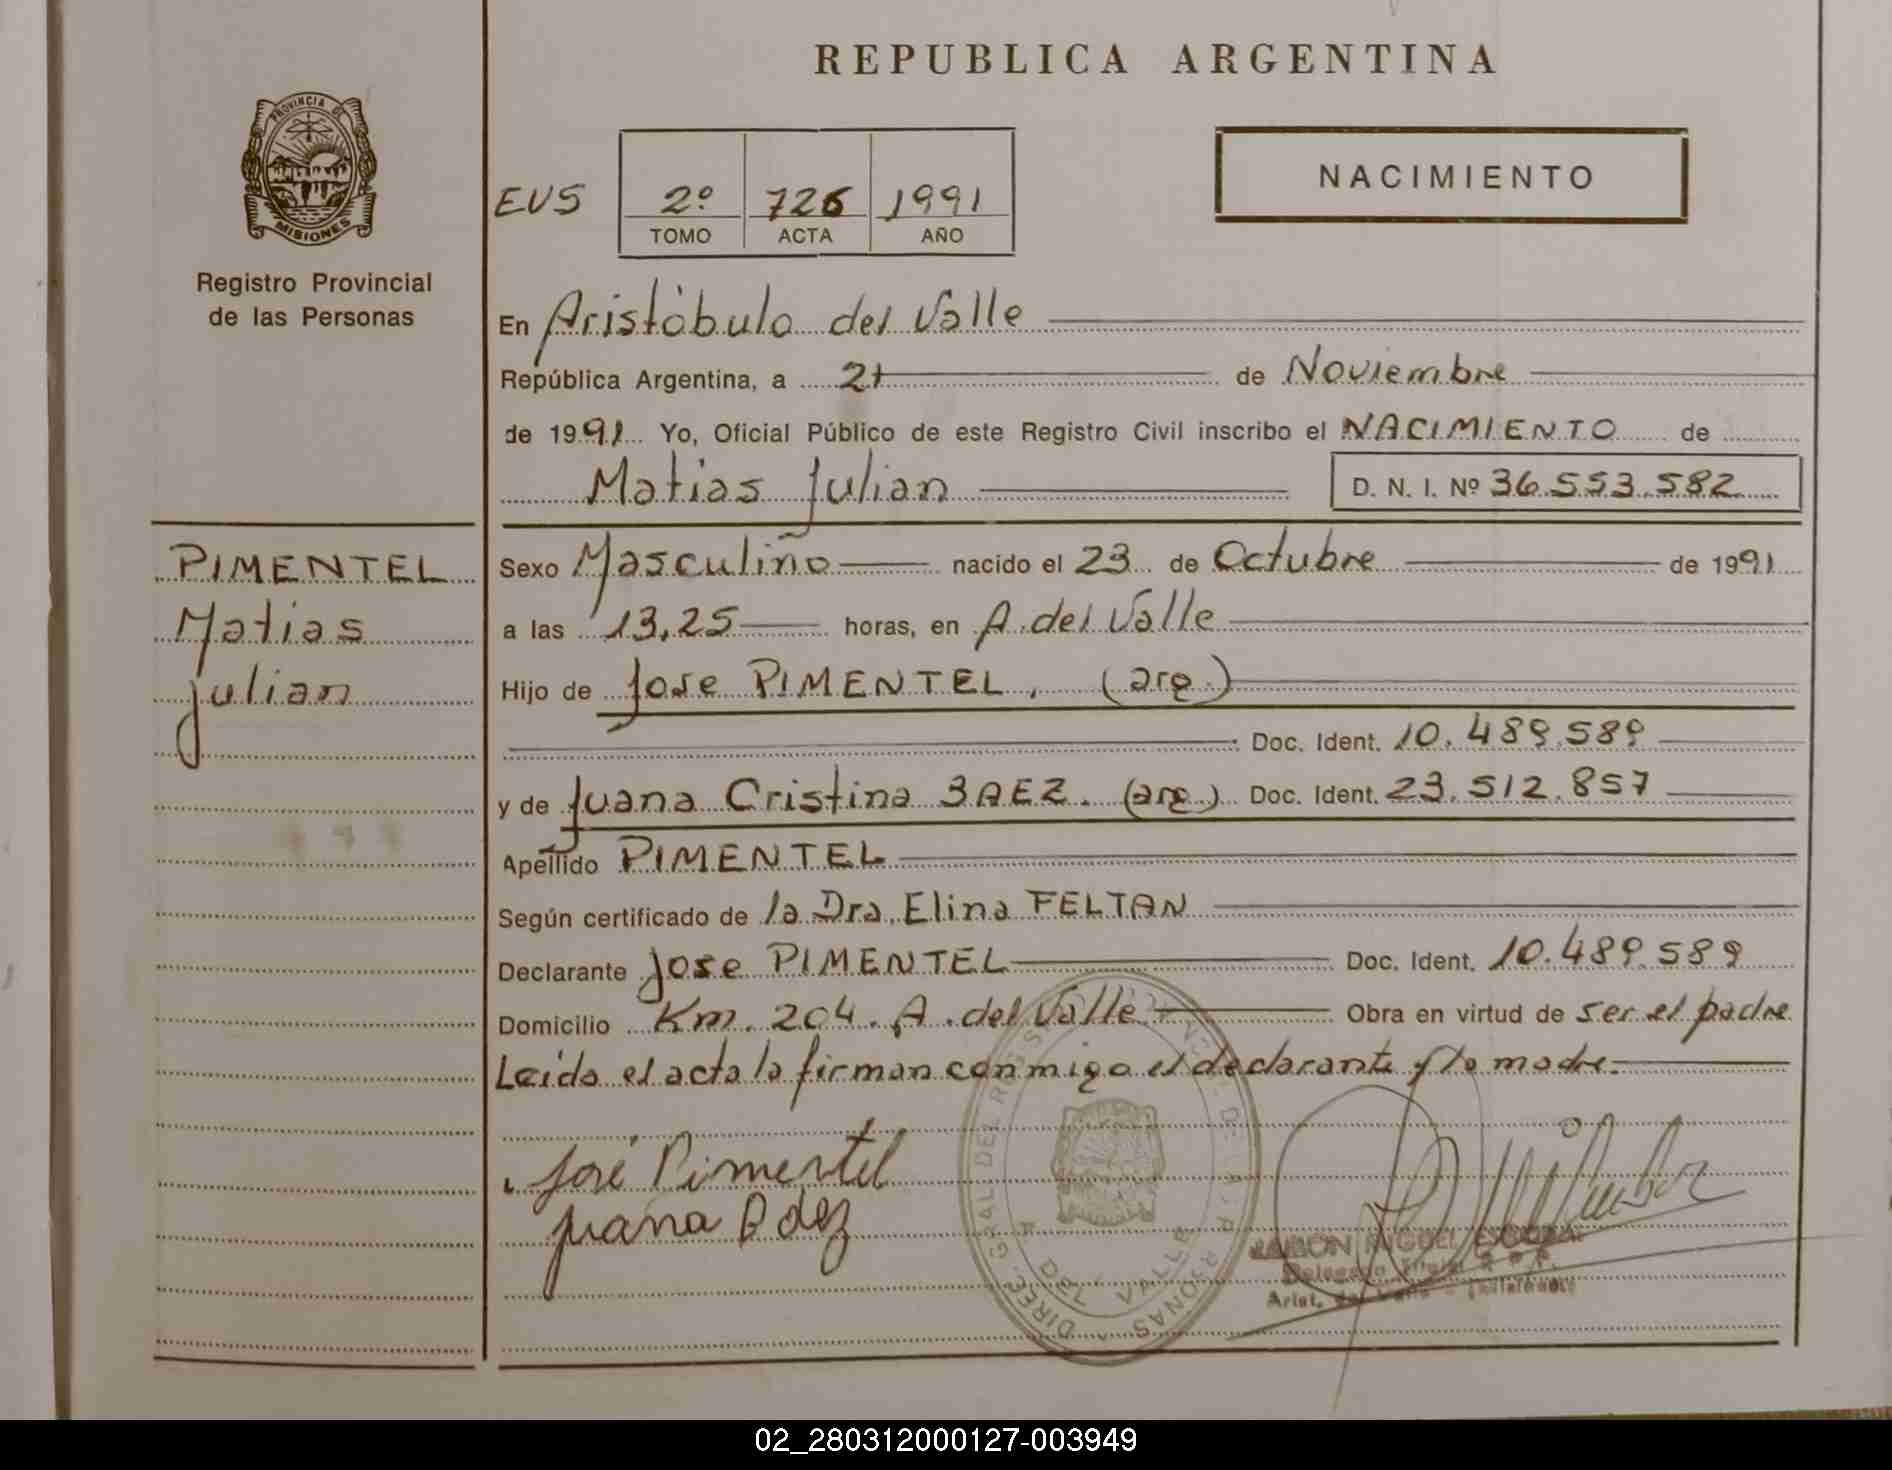 REPUBLICA ARGENTINA
PROVINCIA DE
MISIONES
Registro Provincial
de las Personas
EVS
2º 726 1991
TOMO ACTA AÑO
NACIMIENTO
En Aristóbulo del Valle
República Argentina, a 21 de Noviembre
de 1991 Yo, Oficial Público de este Registro Civil inscribo el NACIMIENTO de
Matias Julian D. N. I. Nº 36.553.582
PIMENTEL
Matias
Julian
Sexo Masculino nacido el 23 de Octubre de 1991
a las 13,25 horas, en A. del Valle
Hijo de Jose PIMENTEL, (arg.)
Doc. Ident. 10.489.589
y de Juana Cristina BAEZ. (arg.) Doc. Ident. 23.512.857
Apellido PIMENTEL
Según certificado de la Dra. Elina FELTAN
Declarante Jose PIMENTEL Doc. Ident. 10.489.589
Domicilio Km. 204. A. del Valle Obra en virtud de ser el padre
Leida el acta la firman conmigo el declarante y la madre.
José Pimentel
Juana Baez
DIREC. GRAL DEL REGIS
A. DEL VALLE
RAMON MIGUEL
Delegado Titular
Arist. del Valle
02_280312000127-003949